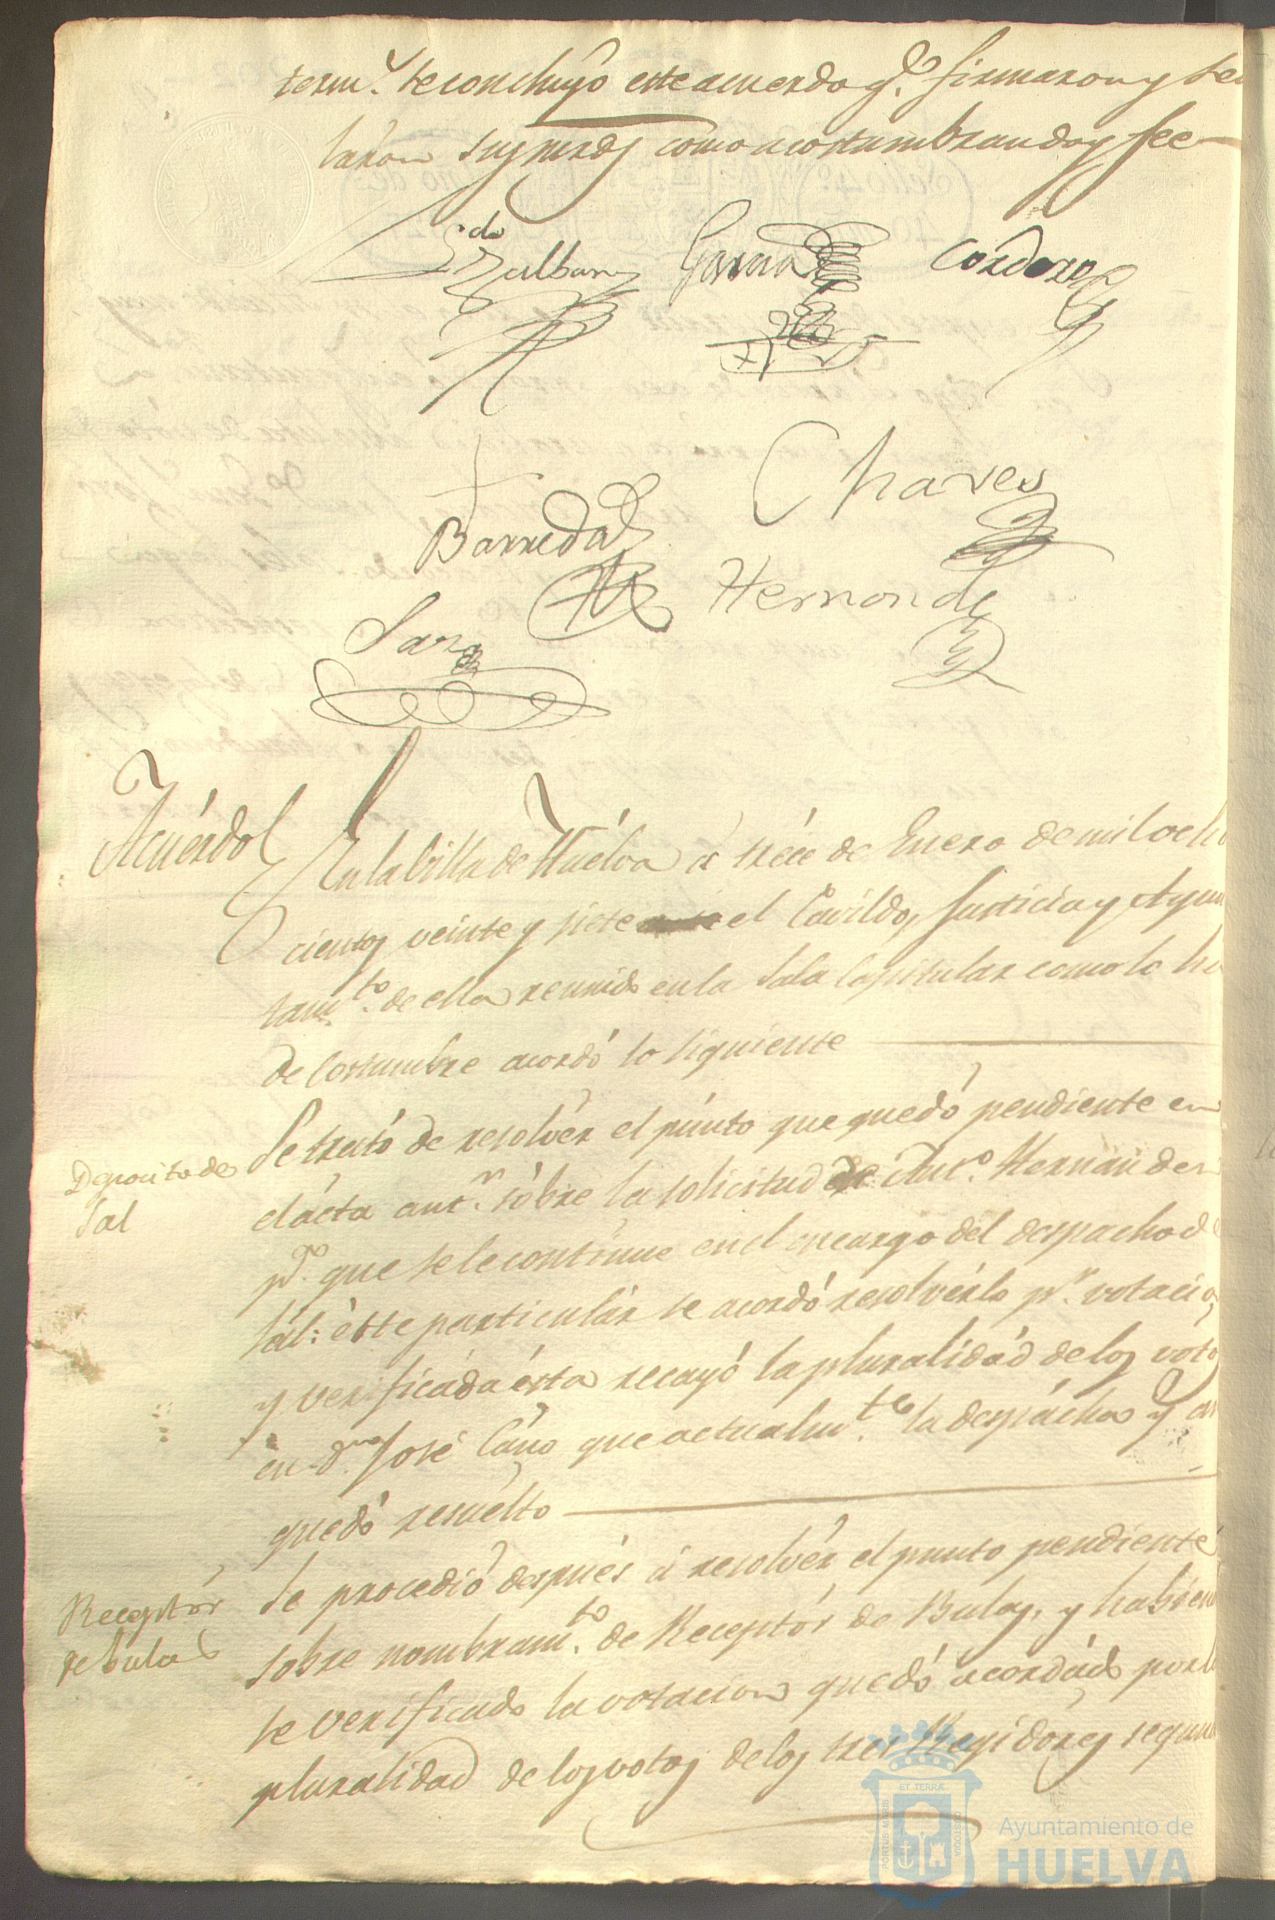 térm.º se concluyó este acuerdo q.e firmaron y seña
laron sus mrds como acostumbran doy fee
Ldo Zalbany García Cordero
Chaves
Barreda
Hernandz
Sanz
Acuérdo En la billa de Huelva à tréce de Enero de mil ocho
cientos veinte y siete el Cavildo, Justicia y Ayun
tam.to de ella reunido en la Sala Capitular como lo ha
de Costumbre acordó lo siguiente
Deposito de
Sal
Se trató de resolvér el púnto que quedó pendiente en
el ácta ant.r sóbre la solicitud de Ant.o Hernández
p.ª que se le continue en el encargo del despacho de
sál: éste particulár se acordó resolvérlo p.r votació
y verificada ésta recayó la pluralidád de los votos
en d.n José Cáno que actualm.te la despácha y así
quedó resuélto
Receptór
de bulas
Se procedió después à resolvér el punto pendiente
sobre nombram.to de Receptór de Bulas, y habiend
se verificado la votacion quedó acordádo por la
pluralidad de los votos de los tres Regidores segun
ET TERRÆ
PORTUS MARIS
CUSTODIA
Ayuntamiento de
HUELVA